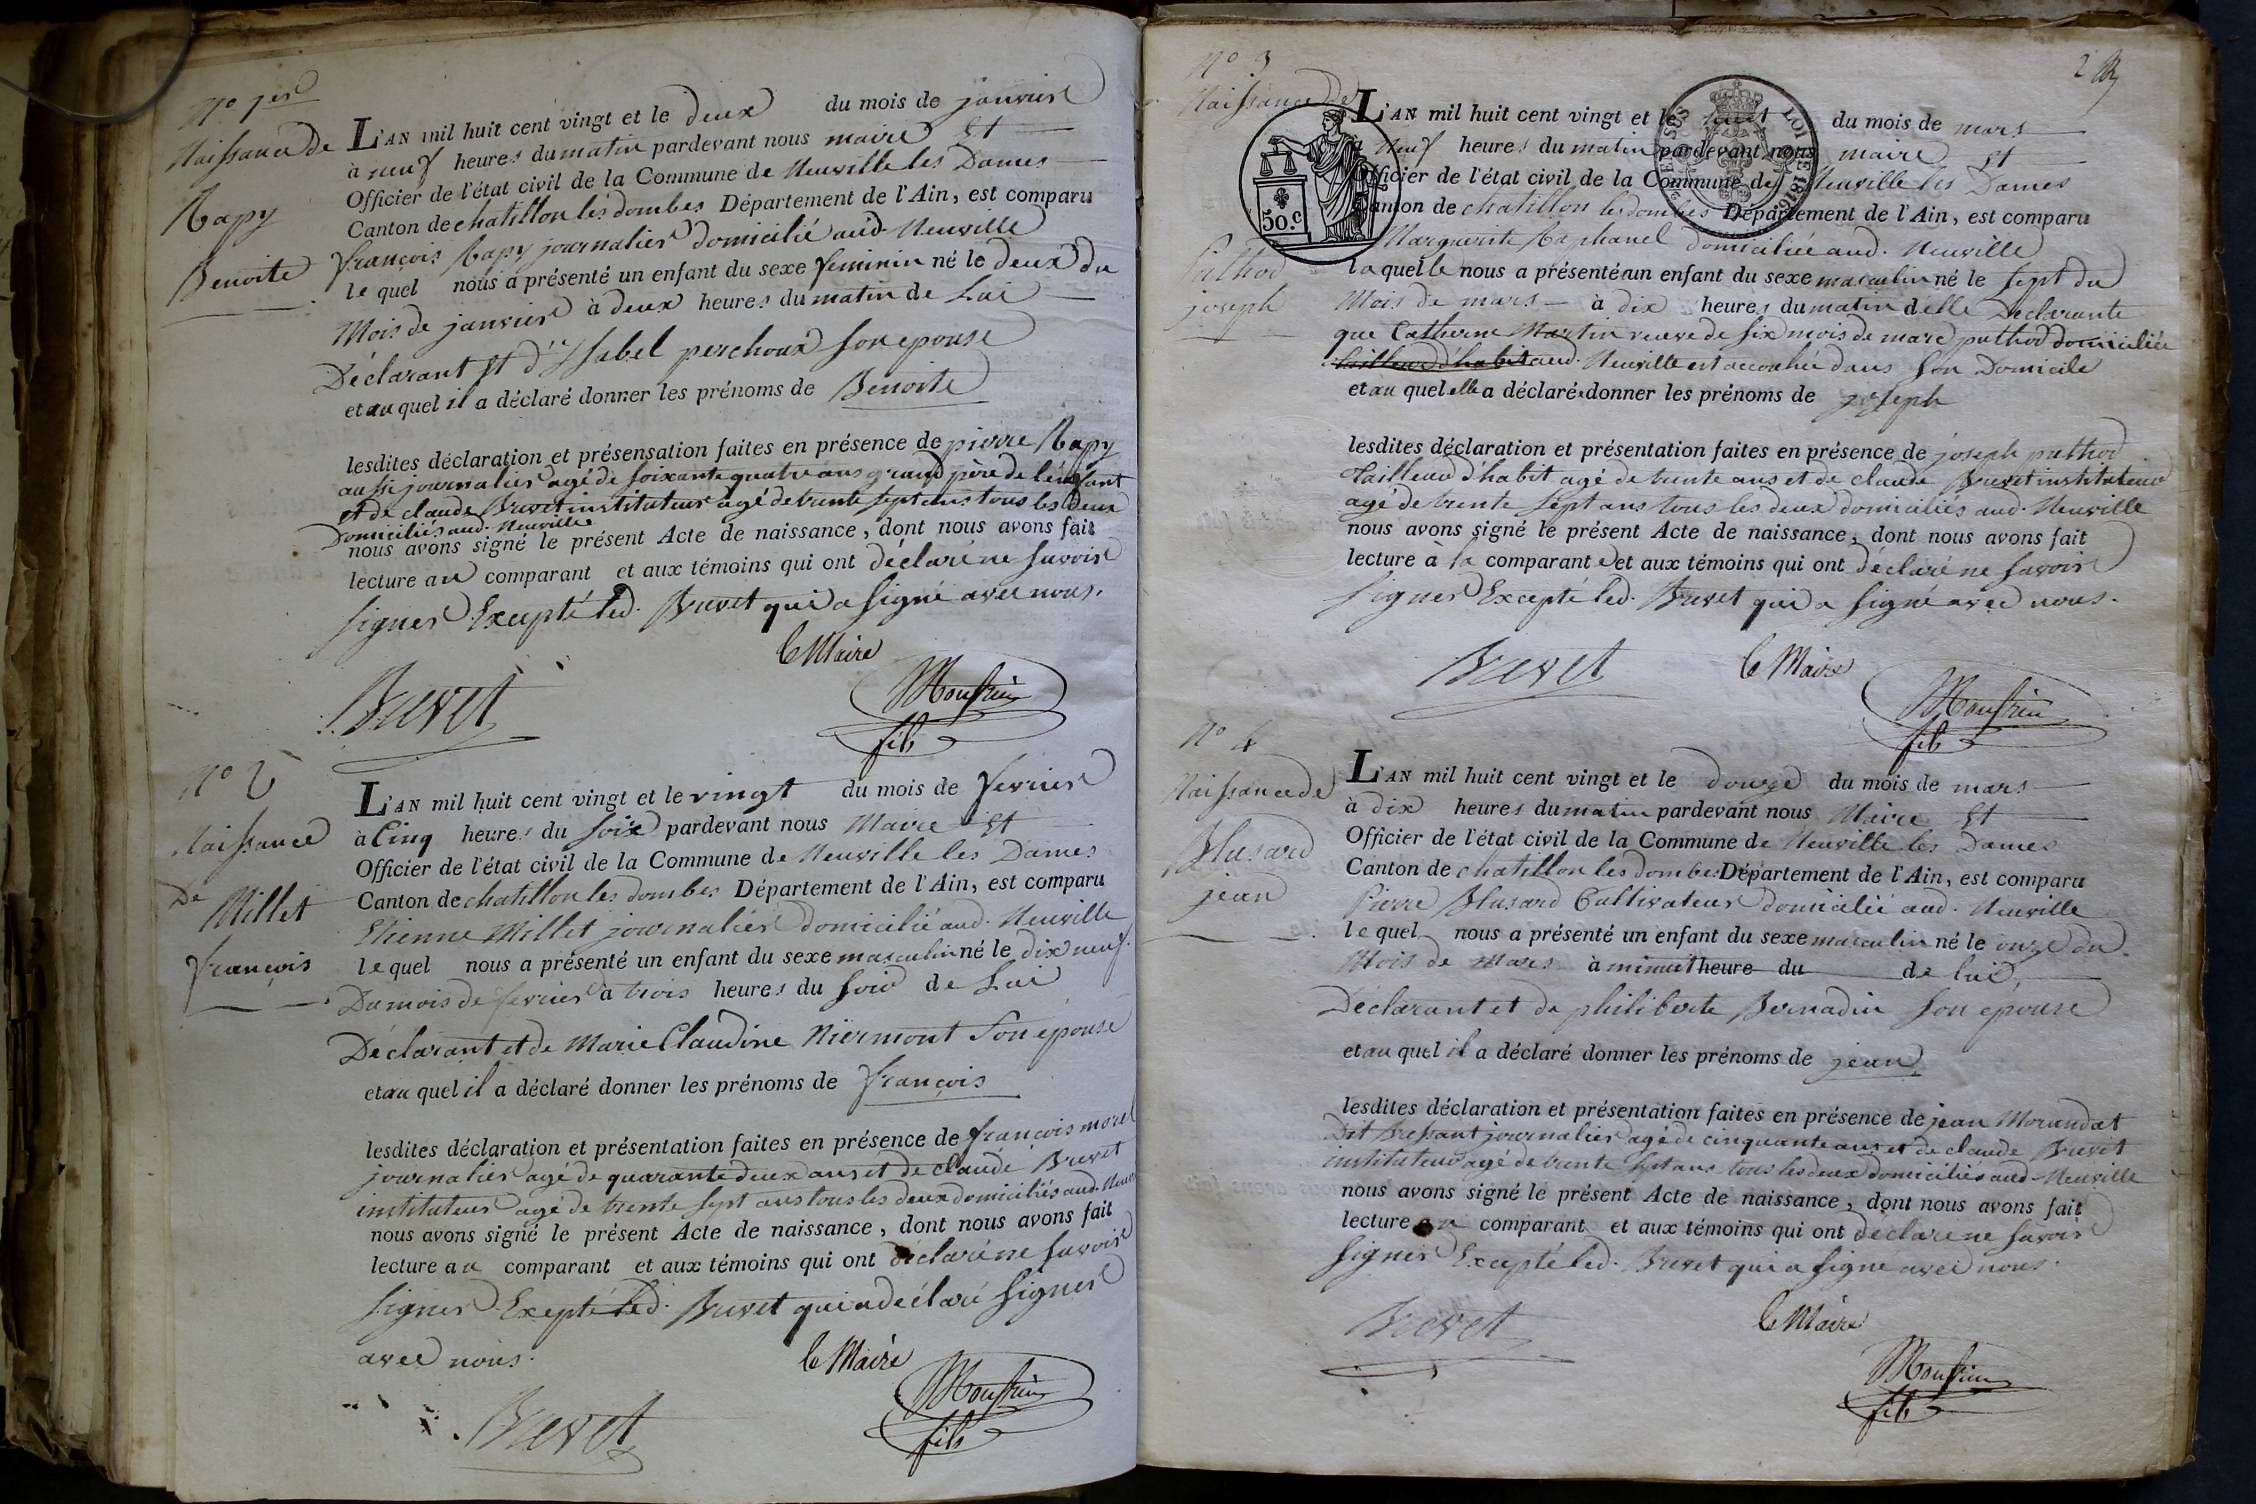 N.o 1er
Naissance de
Rapy
Benoite
L'AN mil huit cent vingt et le deux du mois de janvier
à neuf heures du matin pardevant nous maire Et
Officier de l'état civil de la Commune de Neuville les Dames
Canton de chatillon les dombes Département de l'Ain, est comparu
françois Rapy journalier domicilié aud. Neuville
le quel nous a présenté un enfant du sexe feminin né le deux du
Mois de janvier à deux heures du matin de Lui
Déclarant Et d'Isabel perchoux son epouse
et au quel il a déclaré donner les prénoms de Benoite
lesdites déclaration et présensation faites en présence de pierre Rapy
aussi journalier agé de soixante quatre ans grand père de l'enfant
et de claude Brevet instituteur agé de trente sept ans tous les deux
Domiciliés aud. Neuville
nous avons signé le présent Acte de naissance, dont nous avons fait
lecture au comparant et aux témoins qui ont déclaré ne savoir
signer Excepté led. Brevet qui a signé avec nous.
le Maire
Brevet
Monfrin
fils
N.o 2
Naissance
De
Millet
françois
L'AN mil huit cent vingt et le vingt du mois de fevrier
à Cinq heures du soir pardevant nous Maire Et
Officier de l'état civil de la Commune de Neuville les Dames
Canton de chatillon les dombes Département de l'Ain, est comparu
Etienne Millet journalier domicilié aud. Neuville
le quel nous a présenté un enfant du sexe masculin né le dix neuf
Du mois de fevrier à trois heures du soir de Lui
Déclarant et de Marie Claudine Niermont son epouse
et au quel il a déclaré donner les prénoms de françois
lesdites déclaration et présentation faites en présence de françois morel
journalier agé de quarante deux ans et de claude Brevet
instituteur agé de trente sept ans tous les deux domiciliés aud.
nous avons signé le présent Acte de naissance, dont nous avons fait
lecture au comparant et aux témoins qui ont déclaré ne savoir
signer Exepté led. Brevet qui a déclaré signer
avec nous.
le Maire
Brevet
Monfrin
fils
2
N.o 3
Naissance de
pathod
joseph
50.c
LOI DE 1816
L'AN mil huit cent vingt et le huit du mois de mars
à Neuf heures du matin pardevant nous maire Et
Officier de l'état civil de la Commune de Neuville les Dames
Canton de chatillon les dombes Département de l'Ain, est comparu
Marguerite Raphanel domiciliée aud. Neuville
la quelle nous a présenté un enfant du sexe masculin né le sept du
Mois de mars à dix heures du matin d'elle Déclarante
que Catherine Martin veuve de six mois de marc pathod domiciliée
tailleur d'habit aud. Neuville est accouchée dans son Domicile
et au quel elle a déclaré donner les prénoms de joseph
lesdites déclaration et présentation faites en présence de joseph pathod
Tailleur d'habit agé de trente ans et de claude Brevet instituteur
agé de trente sept ans tous les deux domiciliés aud. Neuville
nous avons signé le présent Acte de naissance, dont nous avons fait
lecture à la comparante et aux témoins qui ont déclaré ne savoir
signer Excepté led. Brevet qui a signé avec nous.
Brevet
le Maire
Monfrin
fils
N.o 4
Naissance de
Blusard
jean
L'AN mil huit cent vingt et le douze du mois de mars
à dix heures du matin pardevant nous Maire Et
Officier de l'état civil de la Commune de Neuville les Dames
Canton de chatillon les dombes Département de l'Ain, est comparu
Pierre Blusard Cultivateur domicilié aud. Neuville
le quel nous a présenté un enfant du sexe masculin né le onze du
Mois de Mars à minuit heure du de lui
Déclarant et de philiberte Bernadin son epouse
et au quel il a déclaré donner les prénoms de jean
lesdites déclaration et présentation faites en présence de jean Morandat
Dit Bressant journalier agé de cinquante ans et de claude Brevet
instituteur agé de trente sept ans tous les deux domiciliés aud. Neuville
nous avons signé le présent Acte de naissance, dont nous avons fait
lecture au comparant et aux témoins qui ont déclaré ne savoir
signer Excepté led. Brevet qui a signé avec nous.
Brevet
le Maire
Monfrin
fils